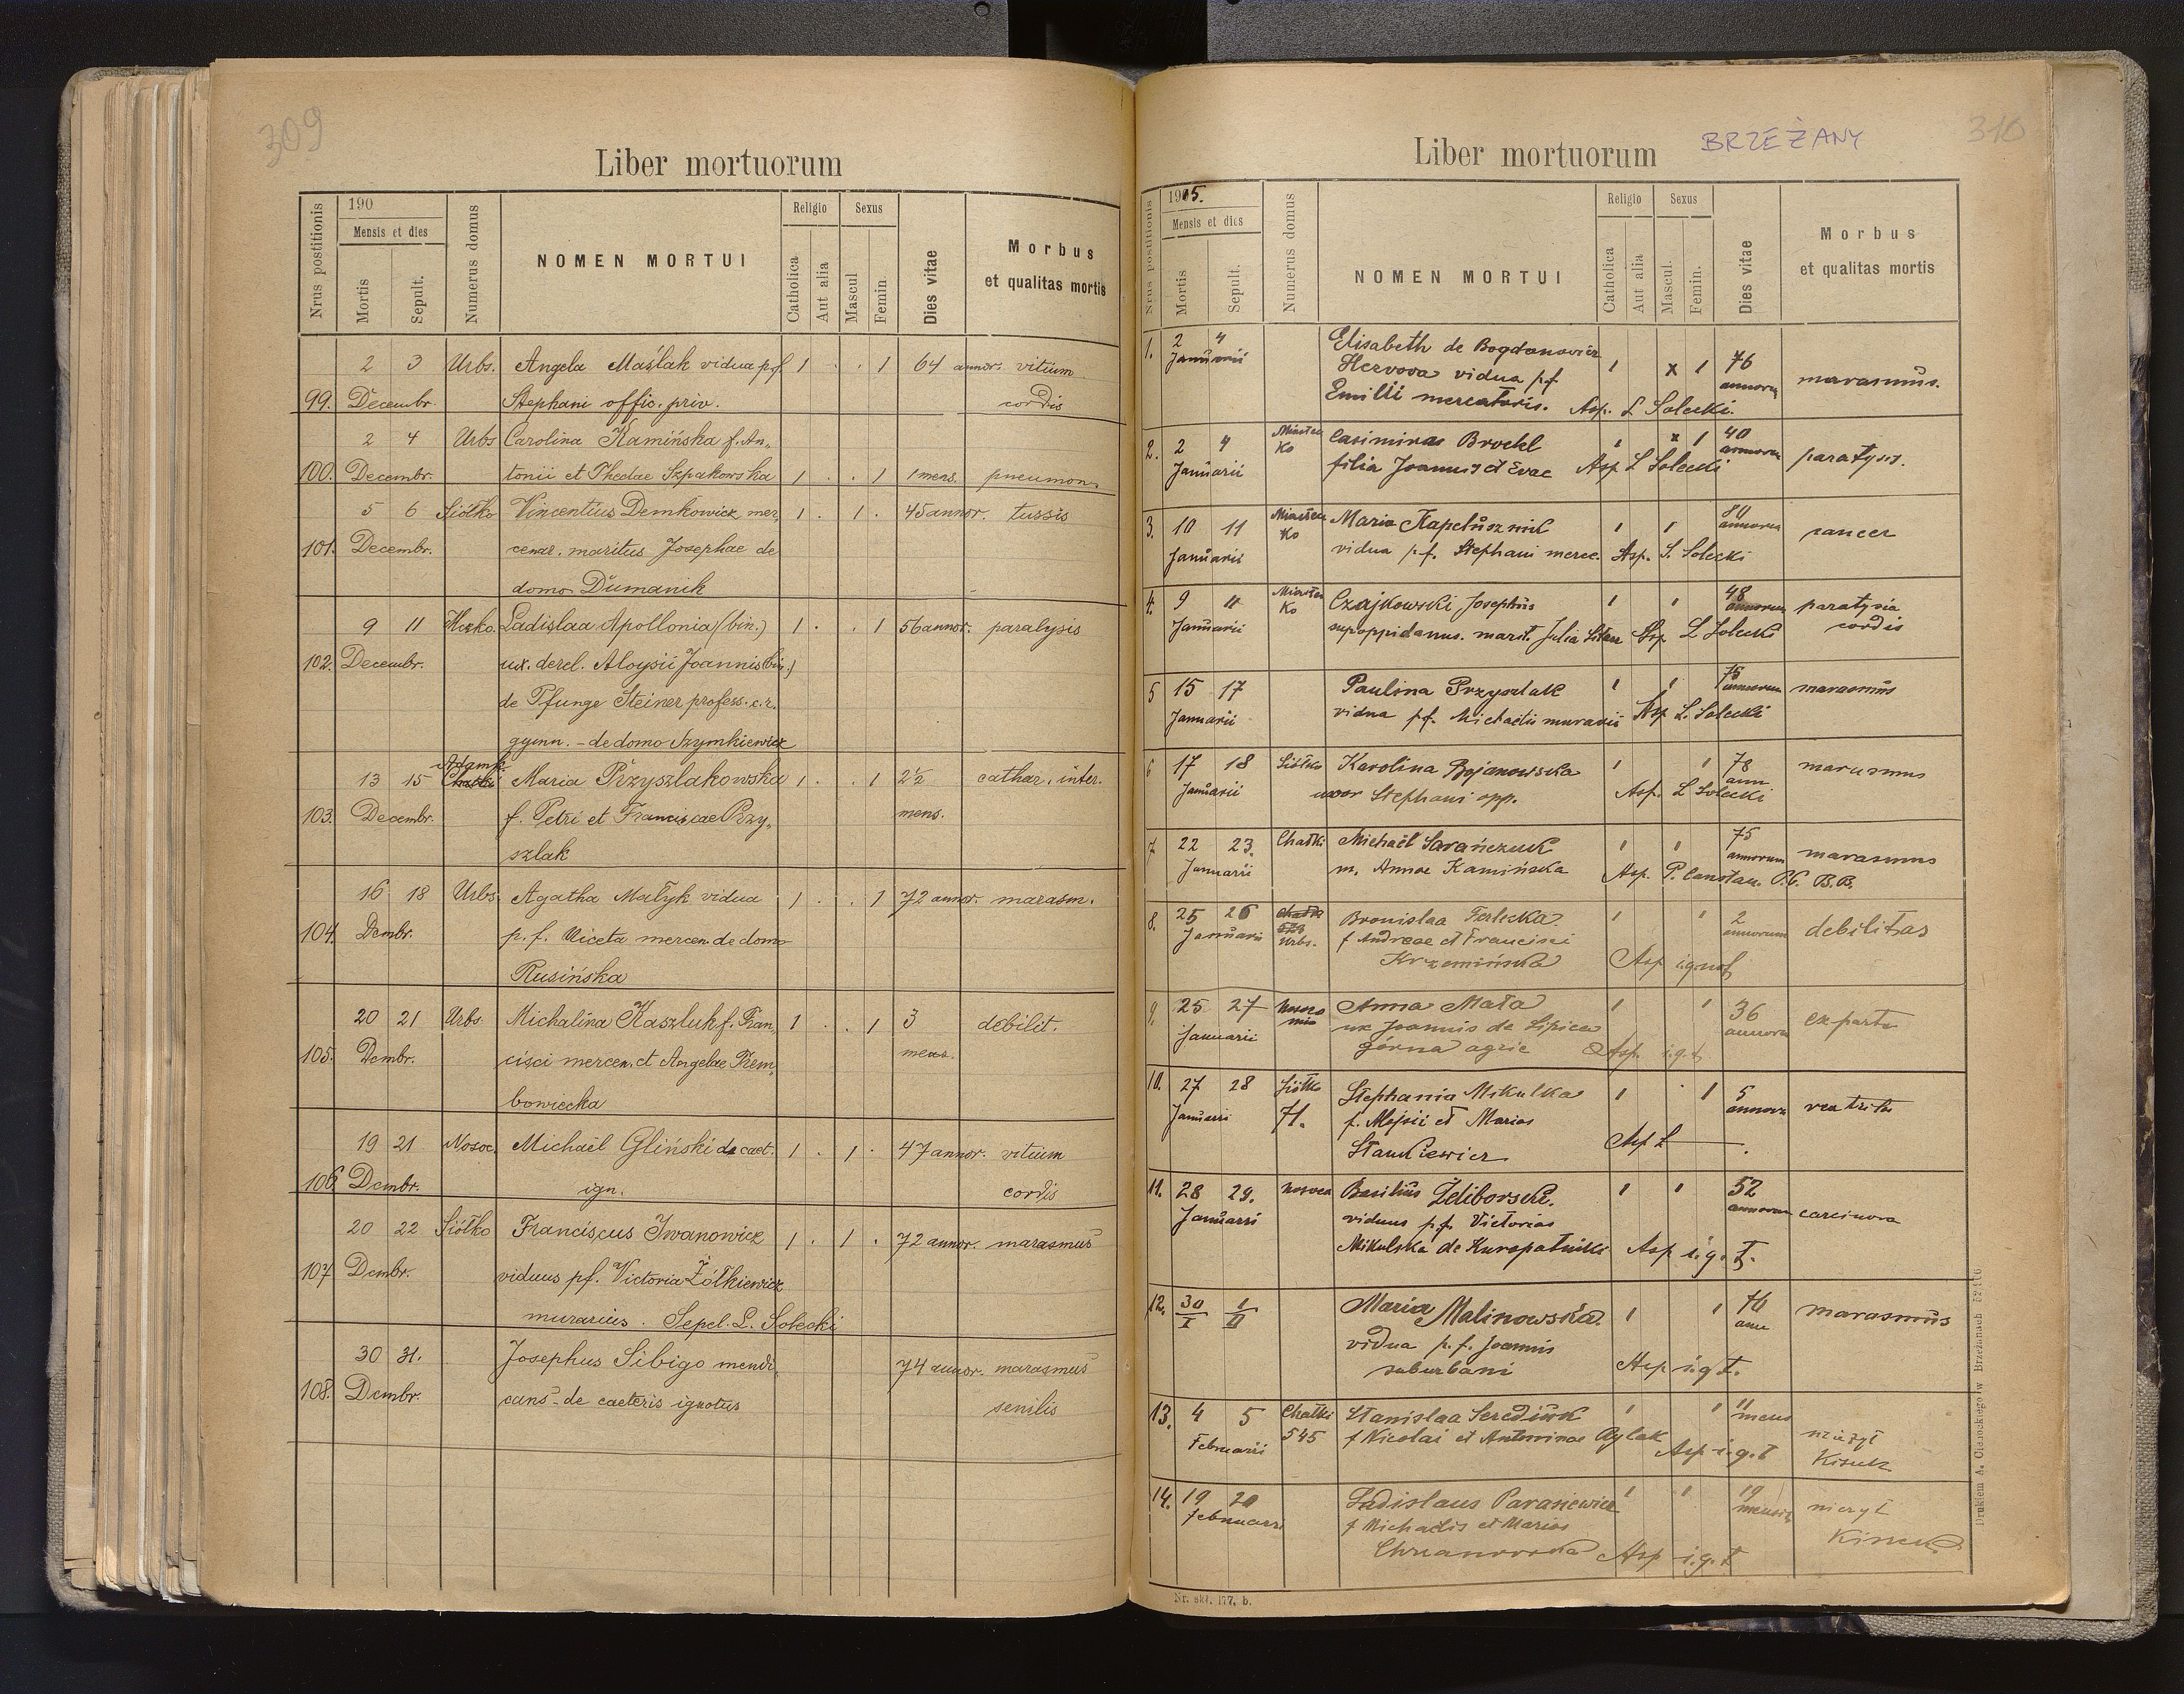 309
Liber mortuorum
Nrus postitionis
190
Mensis et dies
Mortis
Sepult.
Numerus domus
NOMEN MORTUI
Religio
Catholica
Aut alia
Sexus
Mascul
Femin
Dies vitae
Morbus
et qualitas mortis
2 3 Urbs. Angela Maślak vidua p.f. 1 . . 1 64 annor. vitium
99. Decembr. Stephani offic. priv. cordis
2 4 Urbs Carolina Kamińska f. An„
100. Decembr. tonii et Theclae Szpakowska 1 . . 1 1 mens. pneumon.
5 6 Siółko Vincentius Demkowicz mer„ 1 . 1 . 45 annor. tussis
101. Decembr. cenar. maritus Josephae de
domo Dumanik
9 11 Ladislaa Apollonia (bin.) 1 . . 1 56 annor. paralysis
102. Decembr. ux. derel. Aloysii Joannis (bin.)
de Pfunge Steiner profess. c.r.
gymn. - de domo Szymkiewicz
Adamk.
13 15 Chatki Maria Przyszlakowska 1 . . 1 2½ cathar. inter.
103. Decembr. f. Petri et Franciscae Przy„ mens.
szlak
16 18 Urbs Agatha Małyk vidua 1 . . 1 72 annor. marasm.
104. Dcmbr. p.f. Niceta mercen. de domo
Rusińska
20 21 Urbs. Michalina Kaszluk f. Fran„ 1 . . 1 3 debilit.
105. Dcmbr. cisci mercen. et Angelae Trem„ mens.
bowiecka
19 21 Nosoc. Michaël Gliński de caet. 1 . 1 . 47 annor. vitium
106. Dcmbr. ign. cordis
20 22 Siółko Franciscus Iwanowicz 1 . 1 . 72 annor. marasmus
107 Dcmbr. viduus pf. Victoria Żółkiewicz
murarius. Sepel. L. Solecki
30 31. Josephus Sibigo mendi„ 74 annor. marasmus
108. Dcmbr. cans - de caeteris ignotus senilis
310
BRZEŻANY
Liber mortuorum
Nrus postitionis
1905.
Mensis et dies
Mortis
Sepult.
Numerus domus
NOMEN MORTUI
Religio
Catholica
Aut alia
Sexus
Mascul.
Femin.
Dies vitae
Morbus
et qualitas mortis
1. 2 4 Elisabeth de Bogdanowicz
Januarii vidua p.f. 1 x 1 76
Emilii mercatoris. Asp. L Solecki. annorum marasmus.
2. 2 4 Miasteczko Casimiras 1 x 1 40 annorum
Januarii filia Joannis et Evae Asp L Solecki
3. 10 11 Miasteczko Maria Kapelusznik 1 1 84 annorum cancer
Januarii vidua p.f. Stephani merc. Asp. L. Solecki
4. 9 11 Miasteczko Czajkowski Josephus 1 1 48 annorum
Januarii Asp L Solecki cordis
5 15 17 Paulina Przyszlak 1 1 75 annorum marasmus
Januarii vidua p.f. Michaelis murarii Asp L. Solecki
6 17 18 Siółko Karolina Bojanowska 1 1 78 marasmus
Januarii uxor Stephani opp. Asp. L Solecki ann
7 22 23. Chatki Michaël Sarańczuk 1 1 75 annorum marasmus
Januarii m. Annae Kamińska Asp. P.
8. 25 26 Urbs. Bronislaa Terlecka 1 1 2 annorum debilitas
Januarii f Andreae et Francisci
Krzemińska Asp ignot
9. 25 27 Anna Mała 1 1 36 annorum ex partu
Januarii ux Joannis de Lipica
górna agric Asp. i.g.t.
10. 27 28 Siółko Stephania Mikulka 1 . 1 5 annorum
Januarii 71. f. et Marias
Stankiewicz Asp L
11. 28 29. Basilius Zdiborski. 1 1 52 annorum carcinoma
Januarii viduus p.f. Victorias
Mikulska de Kuropatniki Asp i.g.t.
12. 30/I 1/II Maria Malinowska. 1 1 76 ann marasmus
vidua p.f. Joannis
suburbani Asp i.g.t.
13. 4 5 Chatki Stanislaa Serediuk 1 1 11 mens nieżyt
Februarii 545 f Nicolai et Antoninae Rylak Asp i.g.t kiszek
14. 19 20 Ladislaus Parasiewicz 1 1 19 mensium nieżyt
Februarii f Michaelis et Marias
Asp i.g.t kiszek
Nr. skł. 177, b.